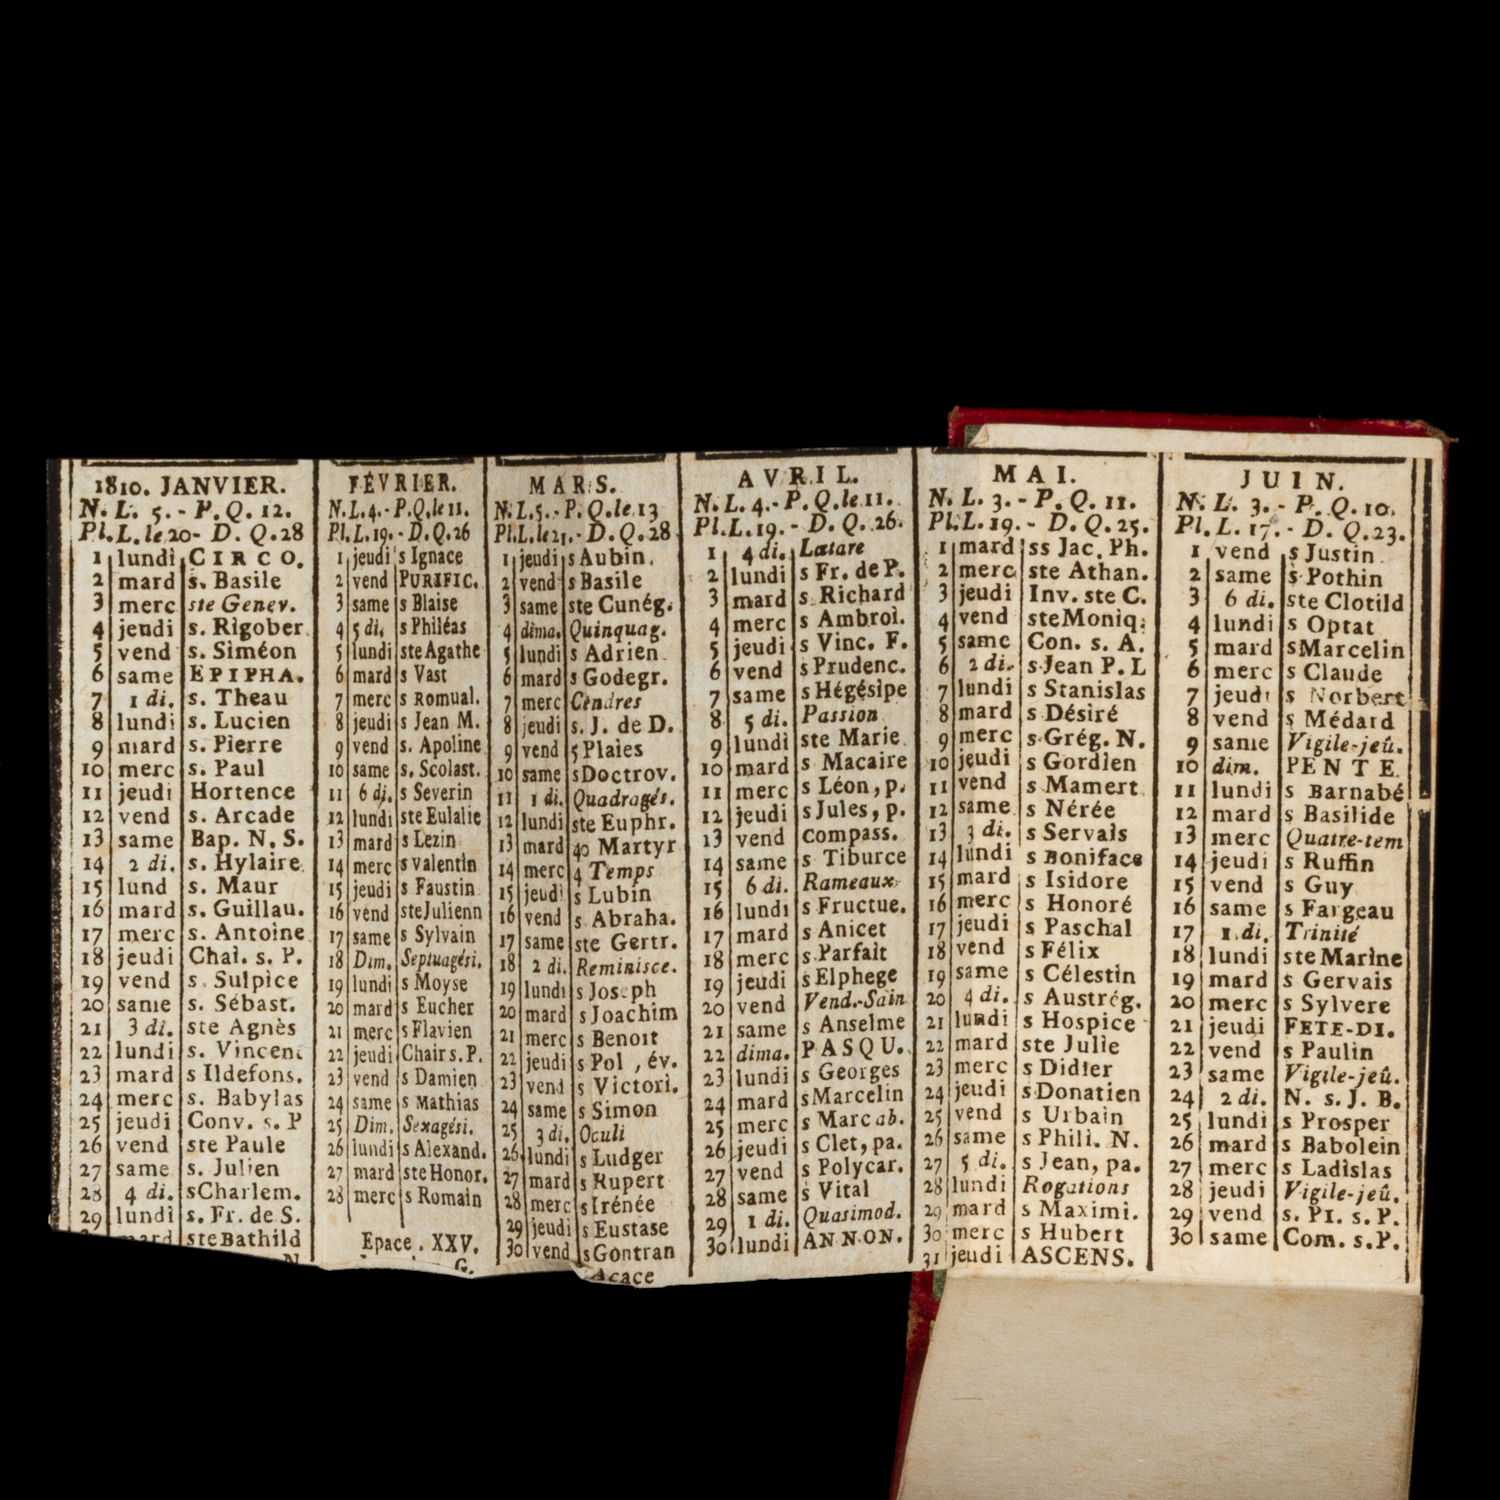 1810. JANVIER.
N. L. 5. - P. Q. 12.
Pl. L. le 20 - D. Q. 28
1 lundi CIRCO.
2 mard s. Basile
3 merc ste Genev.
4 jeudi s. Rigober
5 vend s. Siméon
6 same EPIPHA.
7 1 di. s. Theau
8 lundi s. Lucien
9 mard s. Pierre
10 merc s. Paul
11 jeudi Hortence
12 vend s. Arcade
13 same Bap. N. S.
14 2 di. s. Hylaire
15 lund s. Maur
16 mard s. Guillau.
17 merc s. Antoine
18 jeudi Chai. s. P.
19 vend s. Sulpice
20 same s. Sébast.
21 3 di. ste Agnès
22 lundi s. Vincent
23 mard s Ildefons.
24 merc s. Babylas
25 jeudi Conv. s. P
26 vend ste Paule
27 same s. Julien
28 4 di. s Charlem.
29 lundi s. Fr. de S.
mard ste Bathild
N.
FÉVRIER.
N. L. 4. - P. Q. le 11.
Pl. L. 19. - D. Q. 26
1 jeudi s Ignace
2 vend PURIFIC.
3 same s Blaise
4 5 di. s Philéas
5 lundi ste Agathe
6 mard s Vast
7 merc s Romual.
8 jeudi s Jean M.
9 vend s. Apoline
10 same s. Scolast.
11 6 di. s Severin
12 lundi ste Eulalie
13 mard s Lezin
14 merc s valentin
15 jeudi s Faustin
16 vend ste Julienn
17 same s Sylvain
18 Dim. Septuagési.
19 lundi s Moyse
20 mard s Eucher
21 merc s Flavien
22 jeudi Chair s. P.
23 vend s Damien
24 same s Mathias
25 Dim. Sexagési.
26 lundi s Alexand.
27 mard ste Honor.
28 merc s Romain
Epace. XXV.
G.
MARS.
N. L. 5. - P. Q. le 13
Pl. L. le 21. - D. Q. 28
1 jeudi s Aubin.
2 vend s Basile
3 same ste Cunég.
4 dima. Quinquag.
5 lundi s Adrien
6 mard s Godegr.
7 merc Cendres
8 jeudi s. J. de D.
9 vend 5 Plaies
10 same s Doctrov.
11 1 di. Quadragés.
12 lundi ste Euphr.
13 mard 40 Martyr
14 merc 4 Temps
15 jeudi s Lubin
16 vend s Abraha.
17 same ste Gertr.
18 2 di. Reminisce.
19 lundi s Joseph
20 mard s Joachim
21 merc s Benoit
22 jeudi s Pol, év.
23 vend s Victori.
24 same s Simon
25 3 di. Oculi
26 lundi s Ludger
27 mard s Rupert
28 merc s Irénée
29 jeudi s Eustase
30 vend s Gontran
Acace
AVRIL.
N. L. 4. - P. Q. le 11.
Pl. L. 19. - D. Q. 26.
1 4 di. Lætare
2 lundi s Fr. de P.
3 mard s Richard
4 merc s Ambroi.
5 jeudi s Vinc. F.
6 vend s Prudenc.
7 same s Hégésipe
8 5 di. Passion
9 lundi ste Marie
10 mard s Macaire
11 merc s Léon, p.
12 jeudi s Jules, p.
13 vend compass.
14 same s Tiburce
15 6 di. Rameaux
16 lundi s Fructue.
17 mard s Anicet
18 merc s Parfait
19 jeudi s Elphege
20 vend Vend.-Sain
21 same s Anselme
22 dima. PASQU.
23 lundi s Georges
24 mard s Marcelin
25 merc s Marc ab.
26 jeudi s Clet, pa.
27 vend s Polycar.
28 same s Vital
29 1 di. Quasimod.
30 lundi ANNON.
MAI.
N. L. 3. - P. Q. 11.
Pl. L. 19. - D. Q. 25.
1 mard ss Jac. Ph.
2 merc ste Athan.
3 jeudi Inv. ste C.
4 vend ste Moniq.
5 same Con. s. A.
6 2 di. s Jean P. L
7 lundi s Stanislas
8 mard s Désiré
9 merc s Grég. N.
10 jeudi s Gordien
11 vend s Mamert
12 same s Nérée
13 3 di. s Servais
14 lundi s Boniface
15 mard s Isidore
16 merc s Honoré
17 jeudi s Paschal
18 vend s Félix
19 same s Célestin
20 4 di. s Austrég.
21 lundi s Hospice
22 mard ste Julie
23 merc s Didier
24 jeudi s Donatien
25 vend s Urbain
26 same s Phili. N.
27 5 di. s Jean, pa.
28 lundi Rogations
29 mard s Maximi.
30 merc s Hubert
31 jeudi ASCENS.
JUIN.
N. L. 3. - P. Q. 10.
Pl. L. 17. - D. Q. 23.
1 vend s Justin
2 same s Pothin
3 6 di. ste Clotild
4 lundi s Optat
5 mard s Marcelin
6 merc s Claude
7 jeudi s Norbert
8 vend s Médard
9 same Vigile-jeû.
10 dim. PENTE.
11 lundi s Barnabé
12 mard s Basilide
13 merc Quatre-tem
14 jeudi s Ruffin
15 vend s Guy
16 same s Fargeau
17 1 di. Trinité
18 lundi ste Marine
19 mard s Gervais
20 merc s Sylvere
21 jeudi FETE-DI.
22 vend s Paulin
23 same Vigile-jeû.
24 2 di. N. s. J. B.
25 lundi s Prosper
26 mard s Babolein
27 merc s Ladislas
28 jeudi Vigile-jeû.
29 vend s. PI. s. P.
30 same Com. s. P.